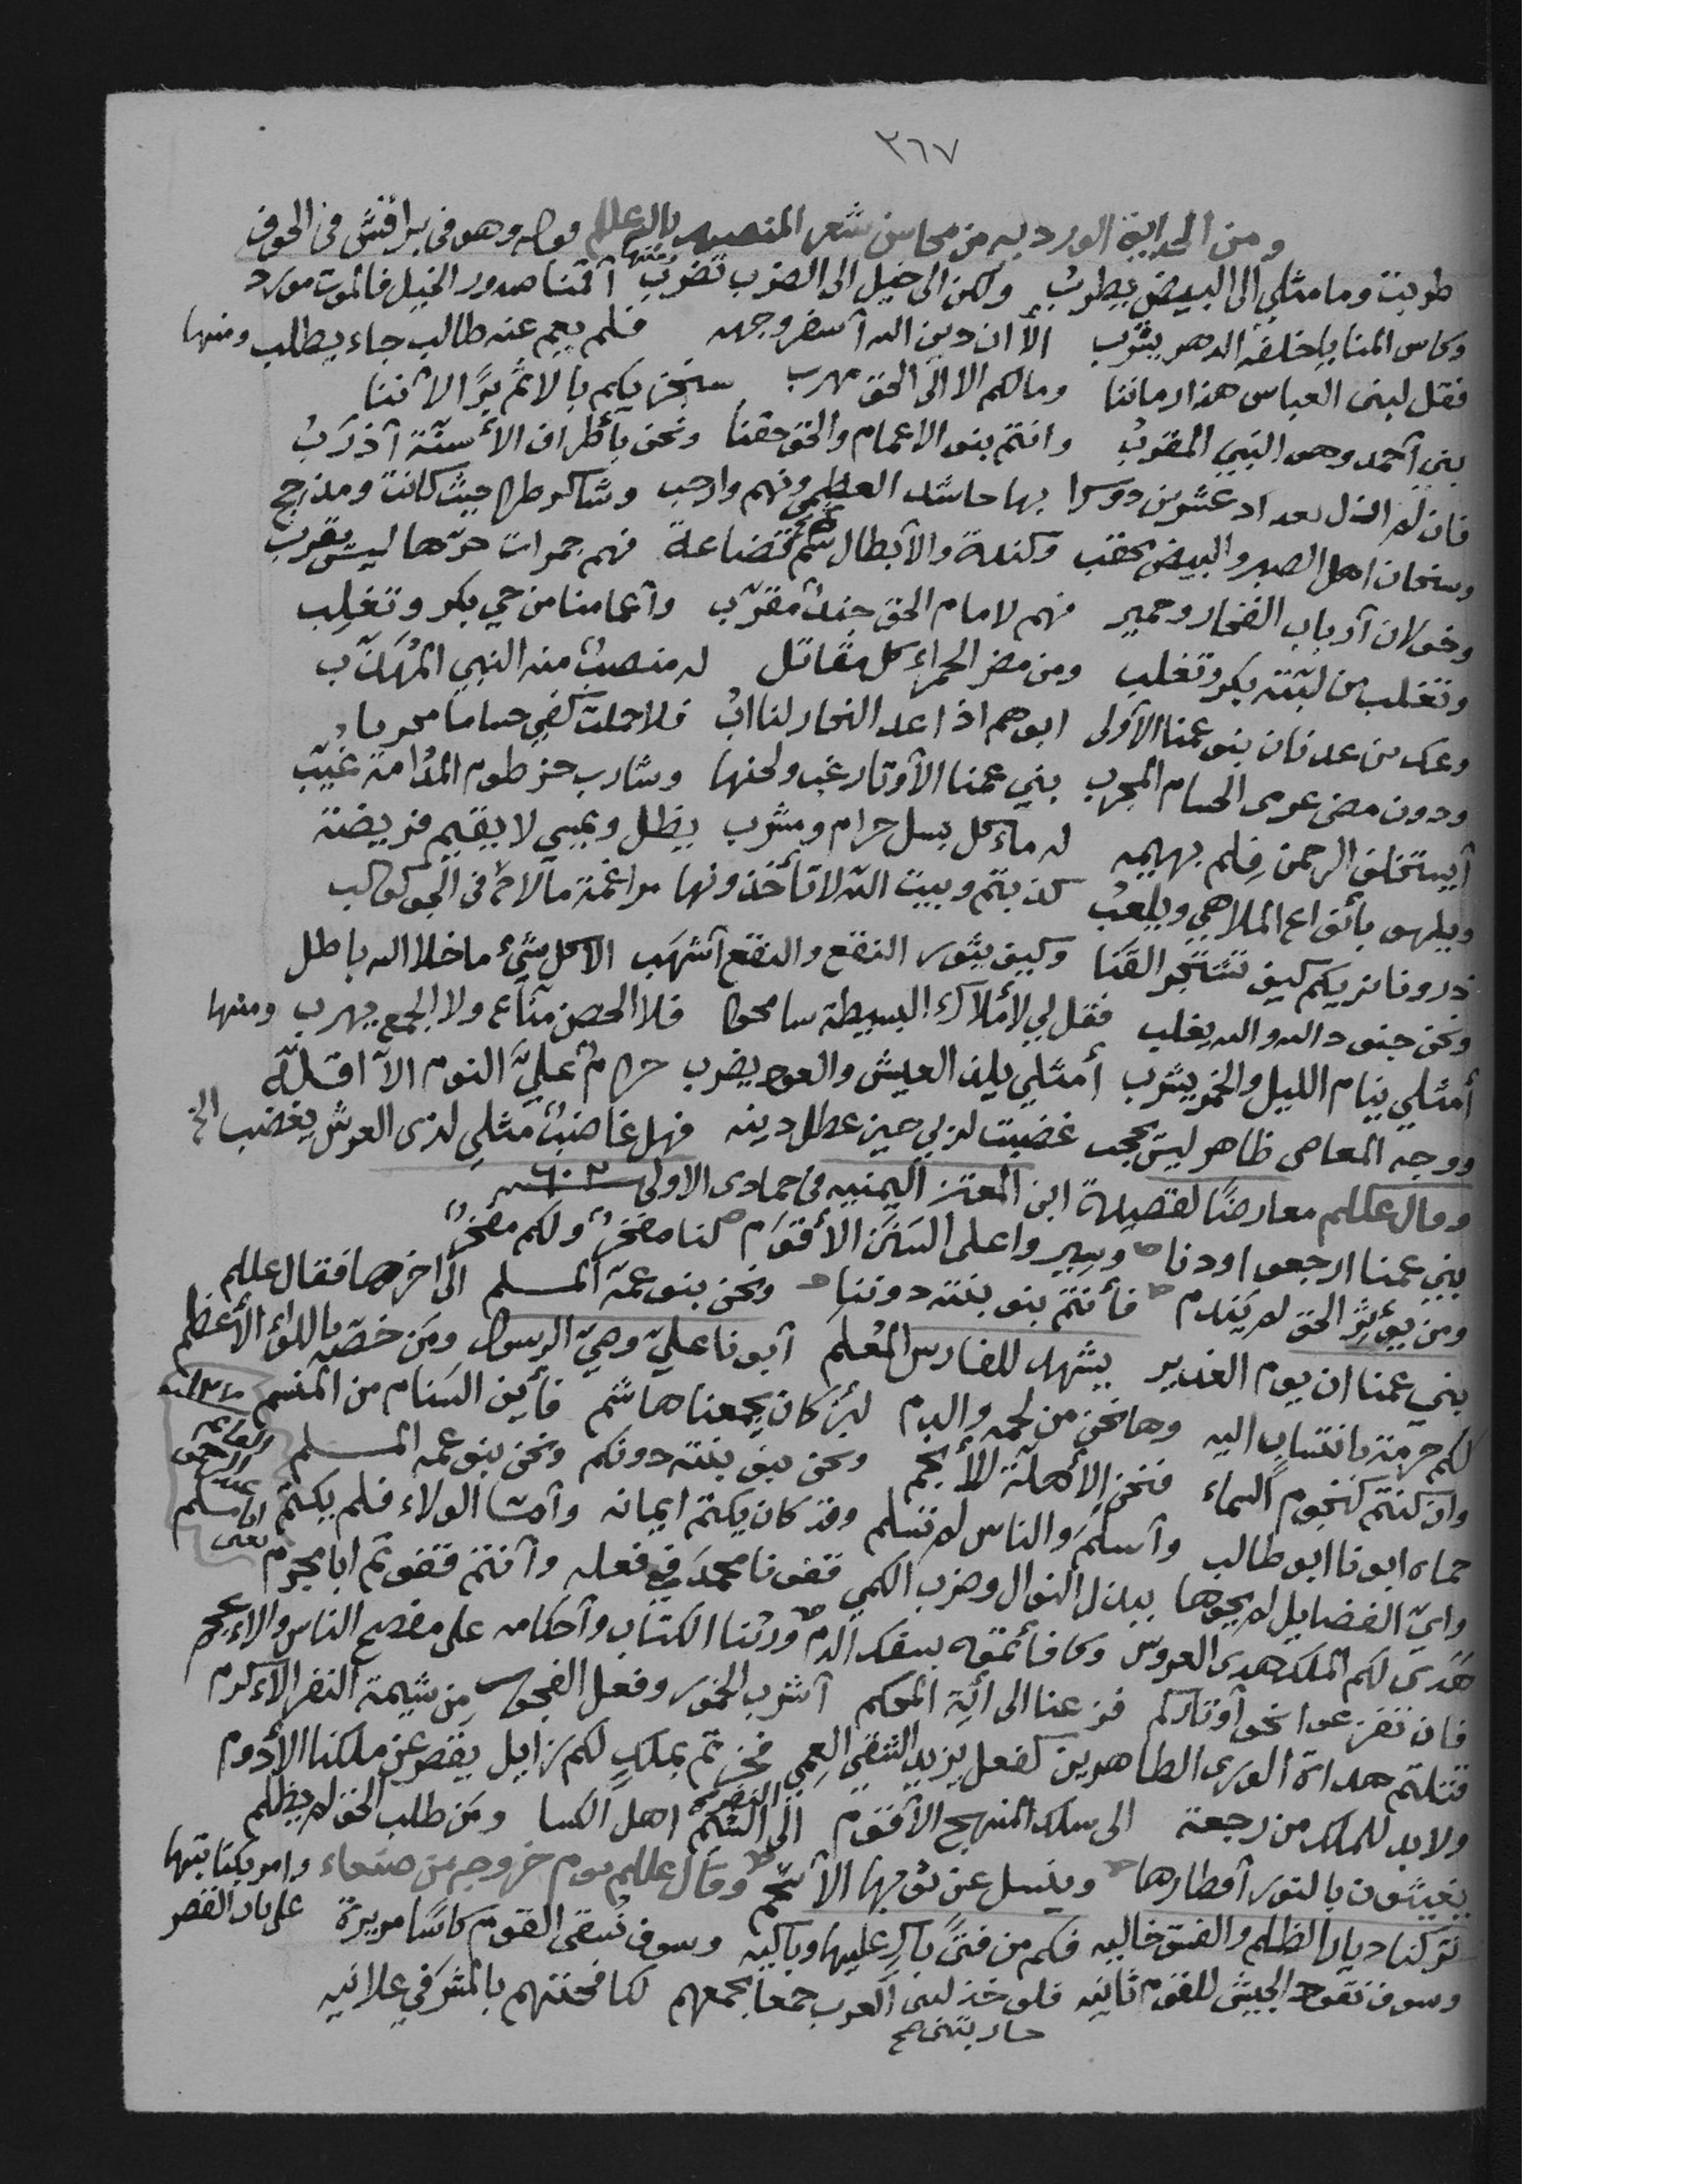 ٣٦٧
ومن الحدايق الوردية من محاسن شعر المنصور بالله عللم قوله وهو في براقش في الجوف
طربت وما مثلي الى البيض يطرب ولكن الى خيل الى الضرب تضرب ومنها أقمنا صدور الخيل فالموت مورد
وكاس المنايا خلفه الدهر يشرب الا ان دين الله أسفر وجهه فلم يعم عنه طالب جاء يطلب ومنها
فقل لبني العباس هذا زماننا ومالكم الا الى الحق مهرب سنجزيكم بالاثم برًّا لاننا
بني أحمد وهو النبي المقرب وانتم بنو الاعمام والحق حقنا ونحن بأطراف الأسنة أذرب
فان له بها حاشد العظمى ونهم وارحب وشاكر طرا حيث كانت ومذحج
وسنحان اهل الصبر والبيض وكندة والأبطال ثم قضاعة فهم جمرات حرّها ليس يقرب
وخولان أرباب الفخار وحمير فهم لامام الحق جند مقرّب وأعمامنا من حي بكر وتغلِب
وتغلب من لبّته بكر وتغلب ومن مضر الحمراء كل مقاتل له منصب منه النبي المهذّب
وعك من عدنان بنو عمنا الأولى ابوهم اذا عد النجار لنا اب فلا حملت كفي حساما مجربا
ودون مضى عرى الحسام المجرب بني عمنا الأوتار غب ولحنها وشارب خرطوم المدامة غيّب
أيستخلف الرحمن فلم بهيمه له مأكل بسل حرام ومشرب يظل ويمسي لا يقيم فريضة
ويلهو بأنواع الملاهي ويلعب كذبتم وبيت الله لا تأخذونها مراغمة مالاح في الجو كوكب
ذرونا نريكم كيف تشتجر القنا وكيف يثور النقع والنقع أشهب الا كل شيء ما خلا الله باطل
ونحن جنود الله والله يغلب فقل لي لأملاك البسيطة سامحوا فلا الحصن منّاع ولا الجمع يهرب ومنها
أمثلي ينام الليل والخمر يشرب أمثلي يلذ العيش والعود يضرب حرام عليّ النوم الا اقلّه
ووجه المعاصي ظاهر ليس يحجب غضبت لربي حين عطل دينه فهل غاضب مثلي لذى العرش يغضب الخ
وقال عللم معارضًا لقصيدة ابن المعتز اليمنيه في جمادى الاولى سنة ٦٠٢
بني عمنا ارجعوا ودنا وسيروا على السنن الأقوم لنا مفخرٌ ولكم مفخرٌ
ومن يؤثر الحق لم يندم فأنتم بنو بنته دوننا ونحن بنو عمّه المسلم الى اخرها فقال عللم
بني عمنا ان يوم الغدير يشهد للفارس المُعلم أبونا عليّ وصيّ الرسول ومَن خصّه باللواء الأعظم
لكم حرمة بانتساب اليه وها نحن من لحمه والدم لئن كان يجمعنا هاشم فأين السَنام من المنسم
وان كنتم كنجوم السماء فنحن الأهلّة للأنجم ونحن بنو بنته دونكم ونحن بنو عمه المسلم
حماه ابونا ابو طالب وأسلم والناس لم تسلم وقد كان يكتم ايمانه وأمّا الولاء فلم يكتم
وايّ الفضايل لم يحوها ببذل النوال وضرب الكمي قفونا محمد في فعله وأنتم قفوتم ابا مجرم
هَدى لكم الملك هدى العروس وكافأتموه بسفك الدم ورثنا الكتاب وأحكامه على مفصح الناس والاعجم
فان تفزعوا نحو أوتاركم فزعنا الى أيَة المحكم أشرب الخمور وفعل الفجور من شيمة النفر الأكرم
قتلتم هداة الورى الطاهرين كفعل يزيد الشقي العمي فخرتم بملكٍ لكم زايل يقصر عن ملكنا الأدوم
ولابد للملك من رجعة الى سلك المنهج الأقوم الى النفر الشم اهل الكسا ومَن طلب الحق لم يظلم
يغيثون بالنور أقطارها وينسل عن ثوبها الأسحم وقال عللم يوم خروجه من صنعاء وامر بكتابتها على باب القصر
تركنا ديار الظلم والفسق خاليه فكم من فتىً باكٍ عليها وباكيه وسوف نسقى القوم كأسًا مريرة
وسوف نقود الجيش للقوم ثانيه فلو خذلتني العرب جمعا بجمعهم لكافحتهم بالمشرفي علانيه
حاربتني صح